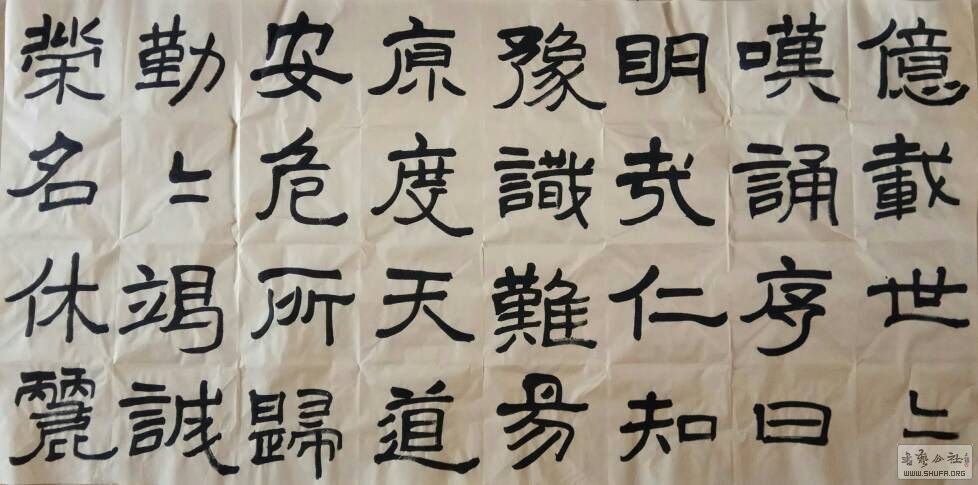 億載世〻
嘆誦序曰
明哉仁知
豫識難易
原度天道
安危所歸
勤〻竭誠
榮名休麗
書藝公社
WWW.SHUFA.ORG